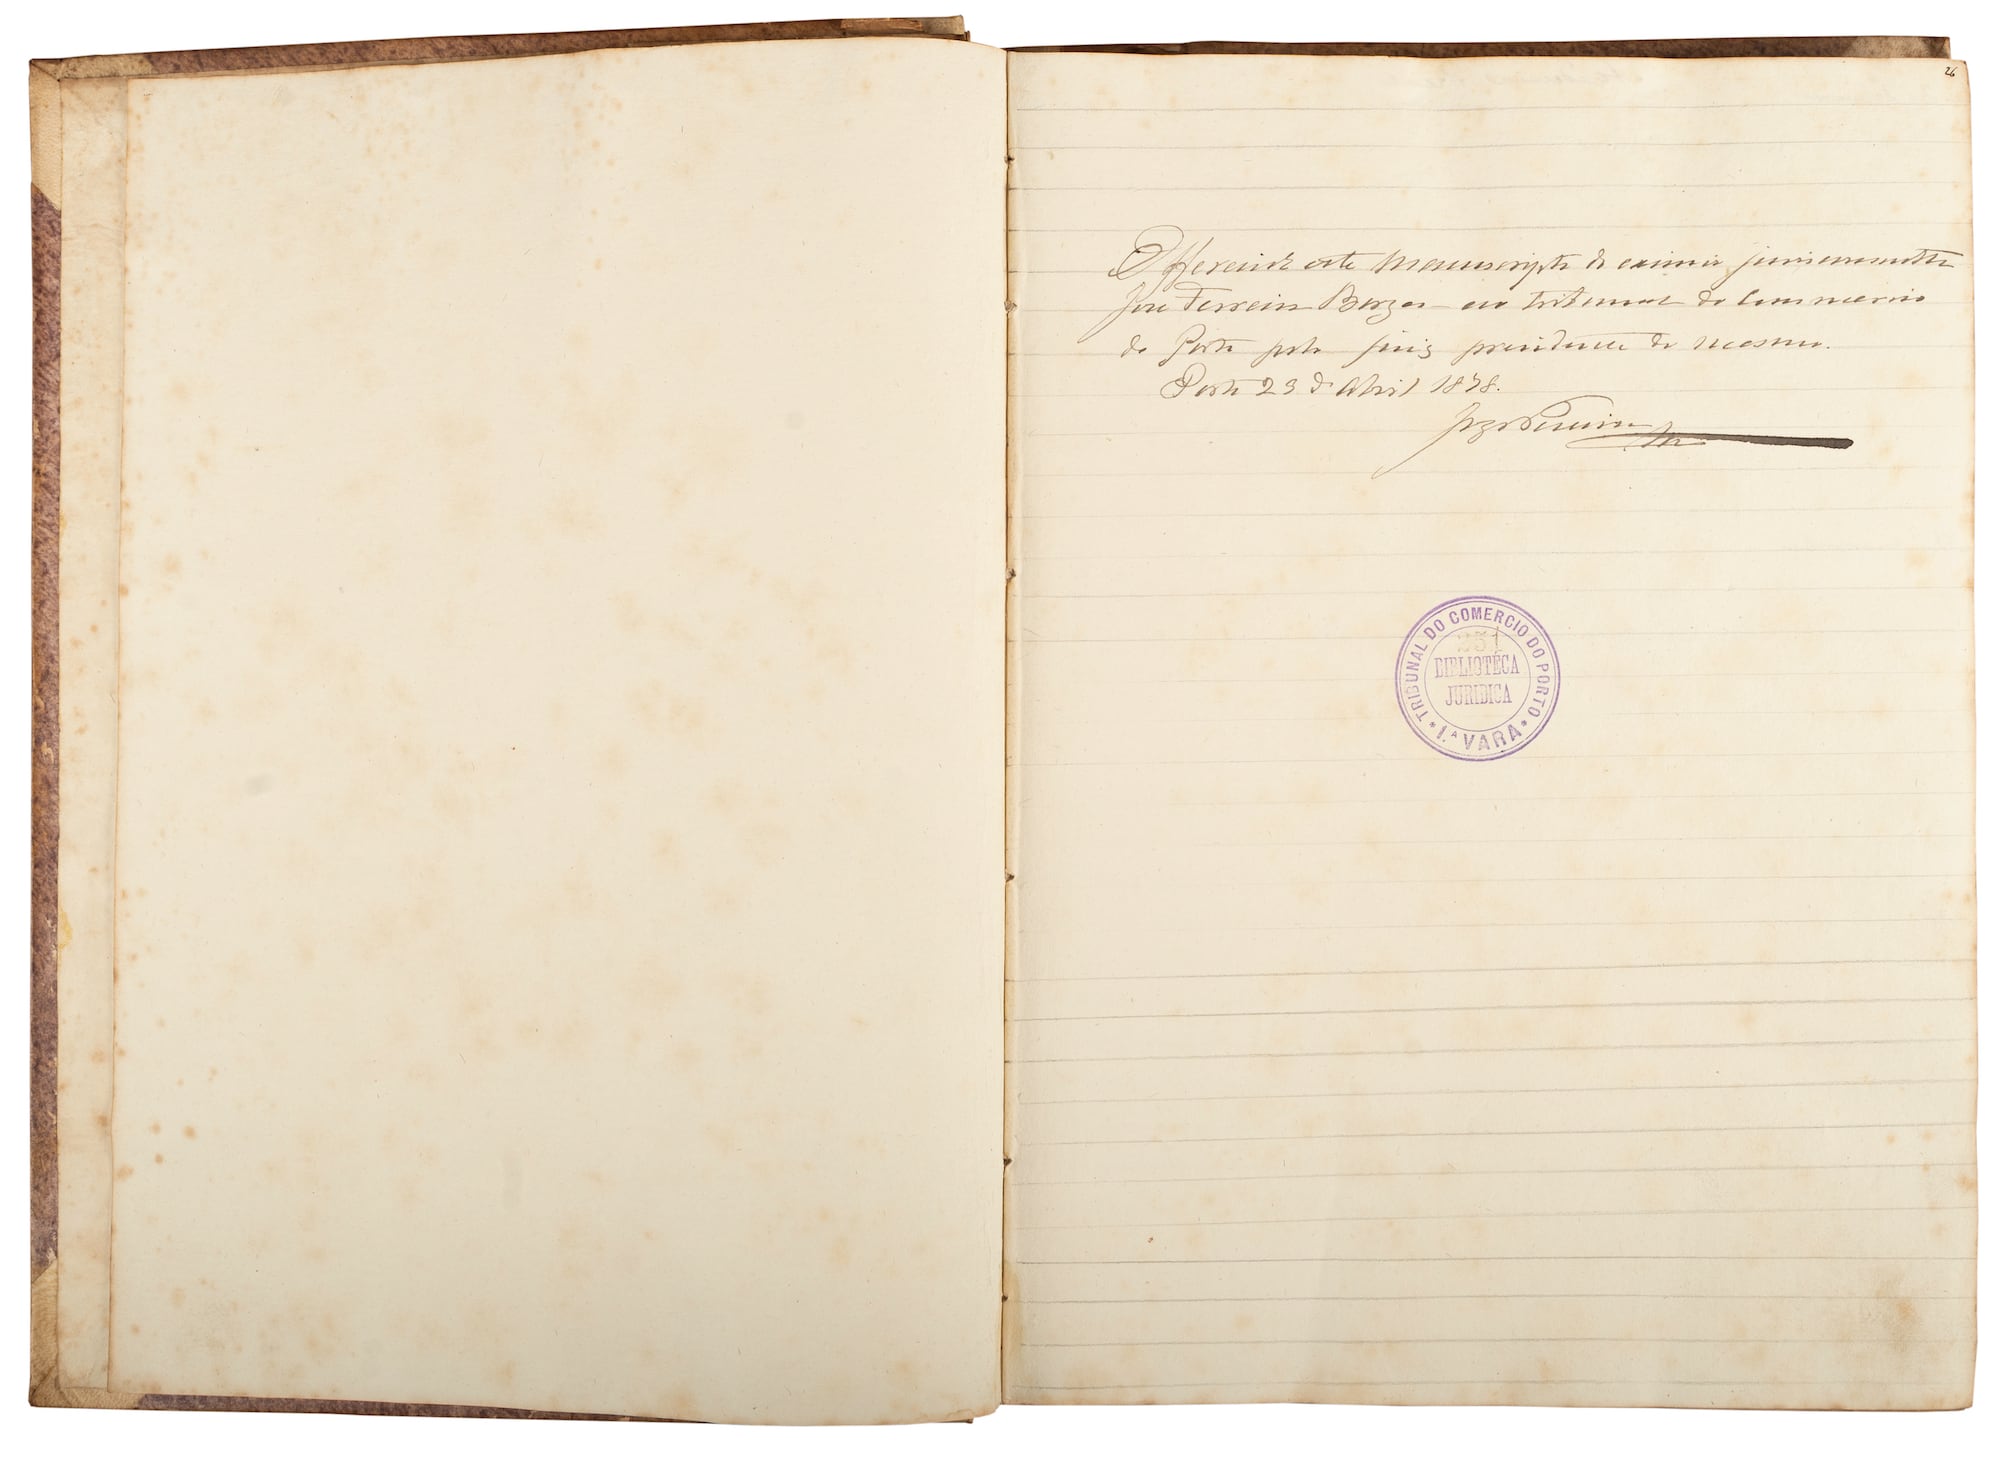 26
Offerecido este Manuscripto do eximio jurisconsulto
José Ferreira Borges ao Tribunal do Commercio
do Porto pelo juiz presidente do mesmo.
Porto 23 de Abril 1878.
Pereira
TRIBUNAL DO COMERCIO DO PORTO
231
BIBLIOTÉCA
JURIDICA
* 1.ª VARA *